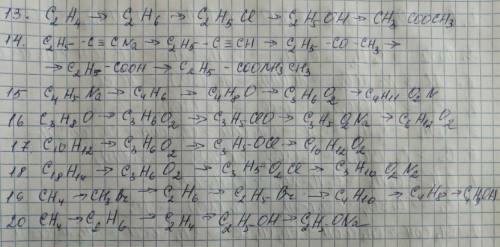 13. C₂H₄ → C₂H₆ → C₂H₅Cl → C₂H₅OH → CH₃COOCH₃
14. C₂H₅-C≡CNa → C₂H₅-C≡CH → C₂H₅-CO-CH₃ →
→ C₂H₅-COOH → C₂H₅-COONH₃CH₃
15 C₄H₅Na → C₄H₆ → C₄H₈O → C₃H₆O₂ → C₄H₁₁O₂N
16 C₃H₈O → C₃H₆O₂ → C₃H₅ClO → C₃H₅O₂Na → C₆H₁₂O₂
17. C₁₀H₁₂ → C₃H₆O₂ → C₃H₅OCl → C₁₀H₁₂O₂
18 C₁₈H₁₄ → C₃H₆O₂ → C₃H₅O₂Cl → C₃H₁₀O₂N₂
19 CH₄ → CH₃Br → C₂H₆ → C₂H₅Br → C₄H₁₀ → C₄H₈ →
20 CH₄ → C₂H₆ → C₂H₄ → C₂H₅OH → C₂H₅ONa